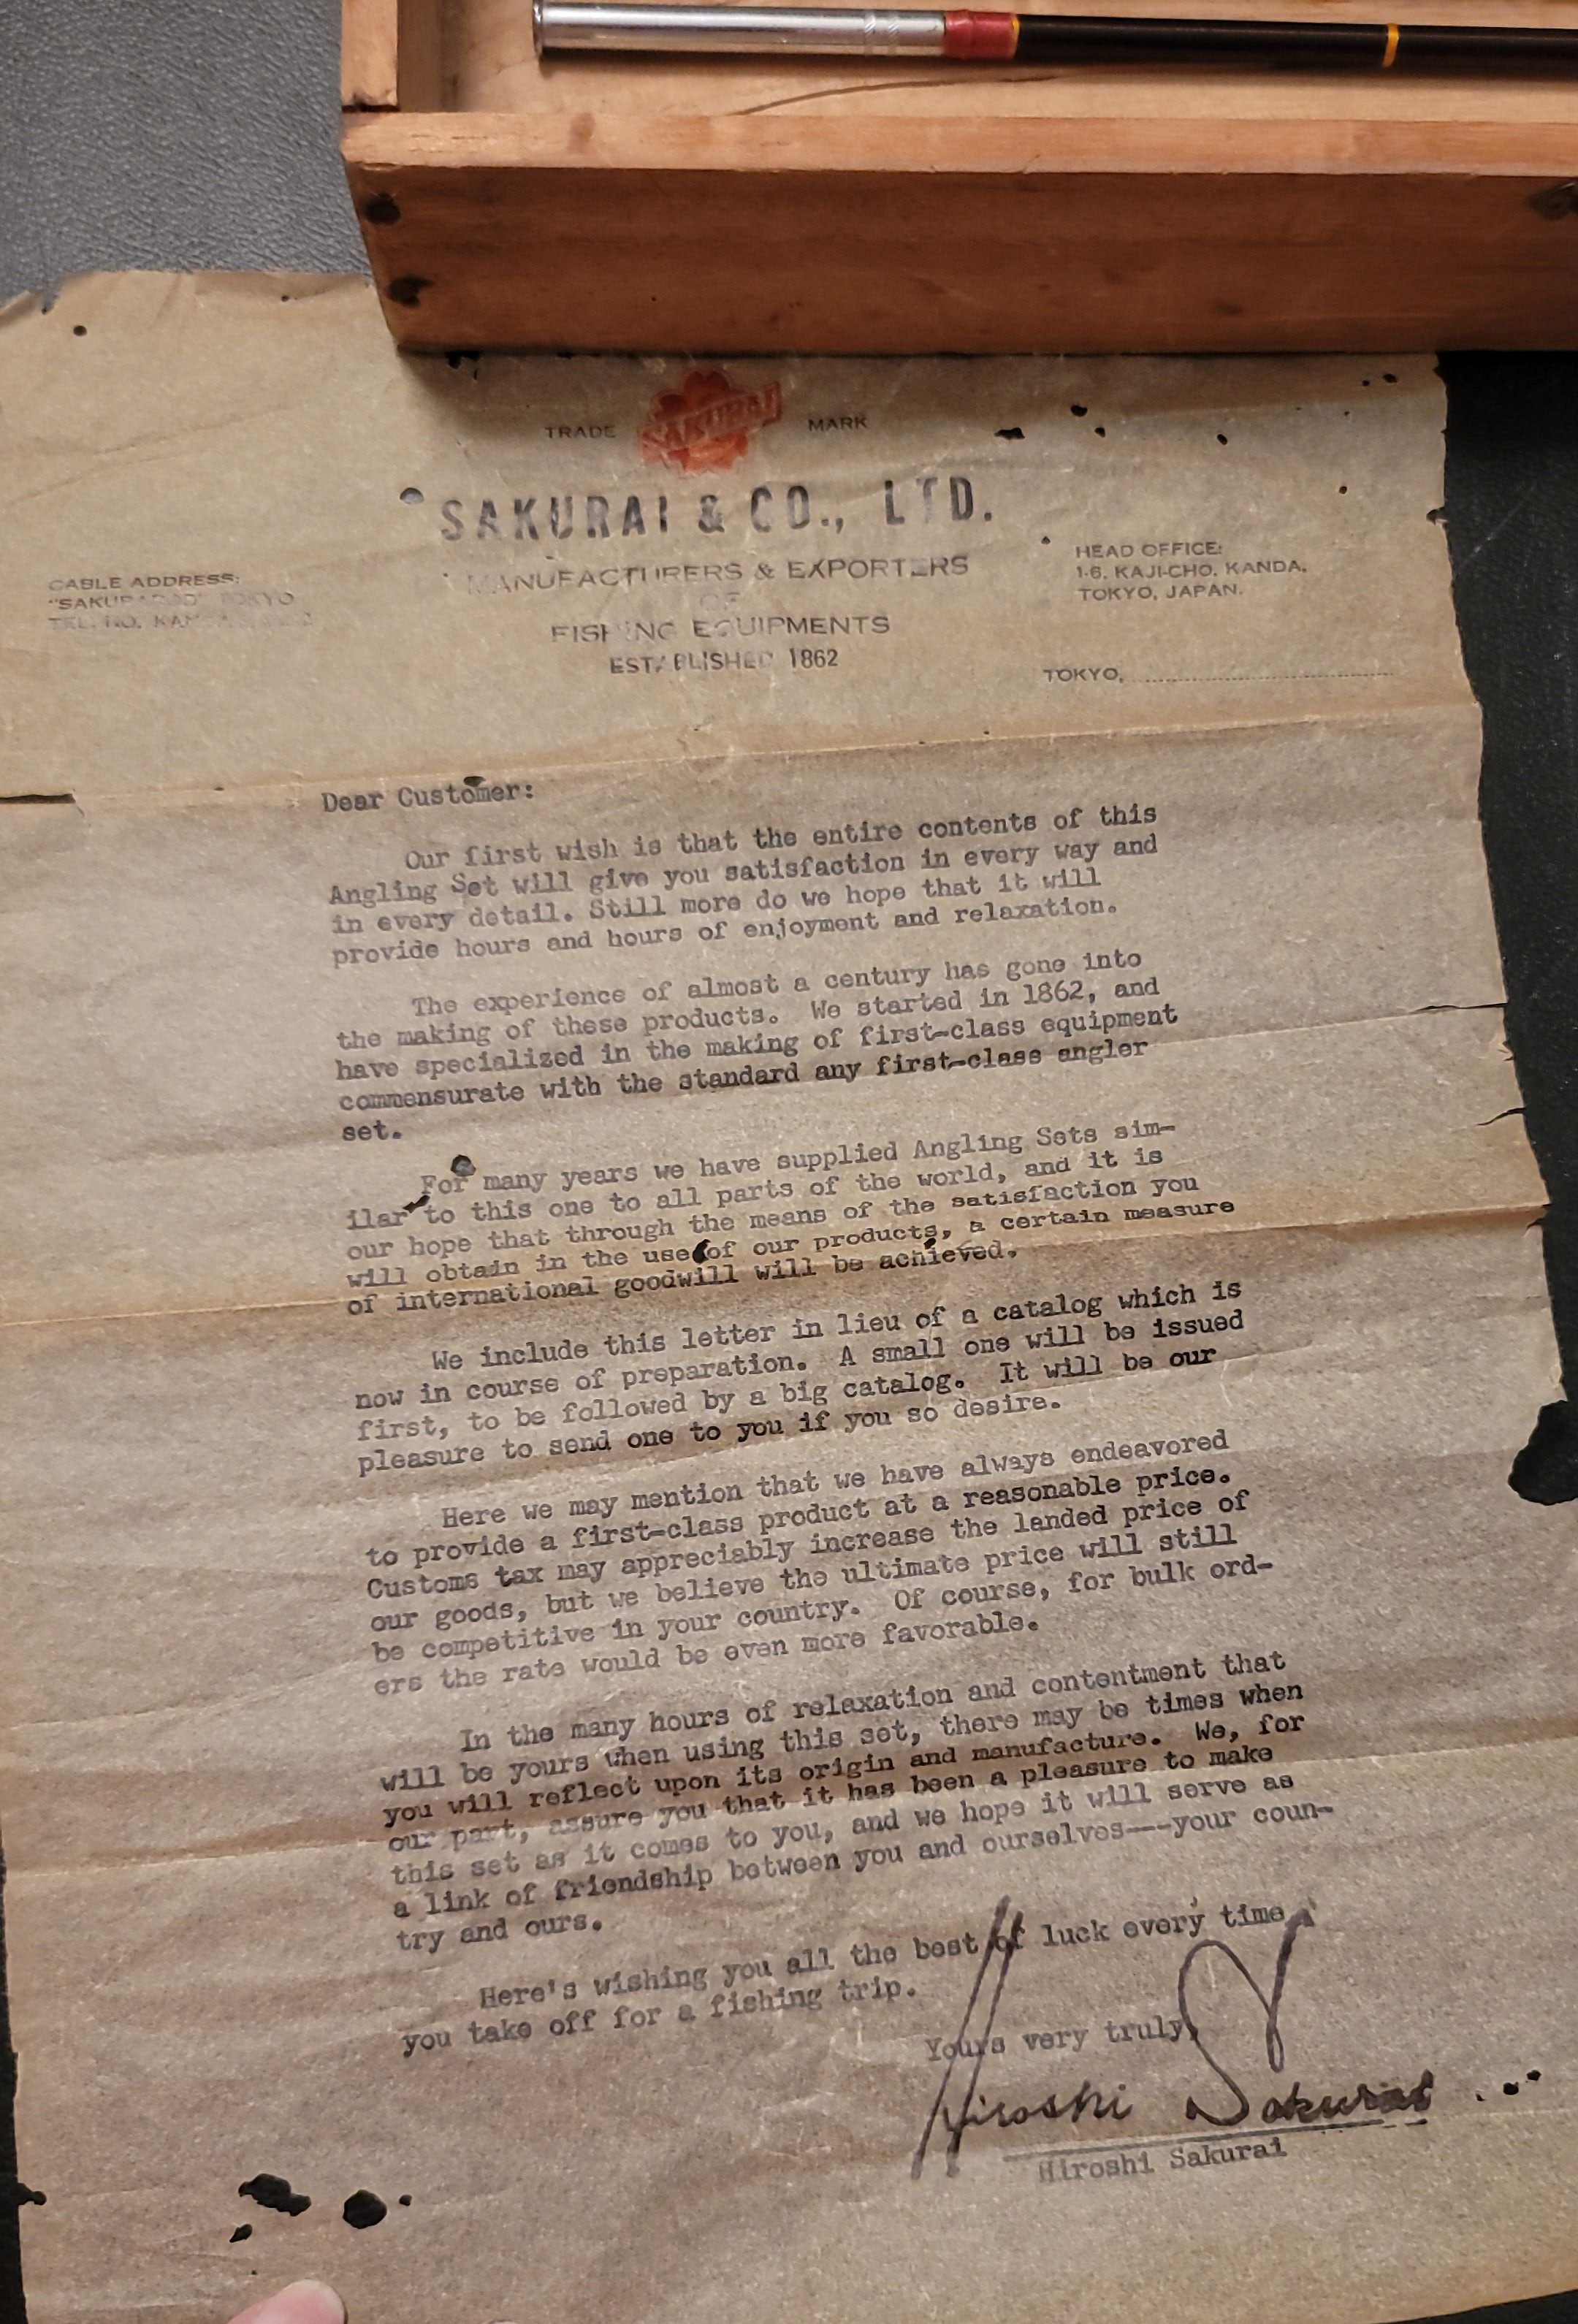 TRADE SAKURAI MARK
SAKURAI & CO., LTD.
MANUFACTURERS & EXPORTERS
OF
FISHING EQUIPMENTS
ESTABLISHED 1862
CABLE ADDRESS:
TOKYO
TEL. NO.
HEAD OFFICE:
1-6, KAJI-CHO, KANDA,
TOKYO, JAPAN.
TOKYO,
Dear Customer:
Our first wish is that the entire contents of this
Angling Set will give you satisfaction in every way and
in every detail. Still more do we hope that it will
provide hours and hours of enjoyment and relaxation.
The experience of almost a century has gone into
the making of these products. We started in 1862, and
have specialized in the making of first-class equipment
commensurate with the standard any first-class angler
set.
For many years we have supplied Angling Sets sim-
ilar to this one to all parts of the world, and it is
our hope that through the means of the satisfaction you
will obtain in the use of our products, a certain measure
of international goodwill will be achieved.
We include this letter in lieu of a catalog which is
now in course of preparation. A small one will be issued
first, to be followed by a big catalog. It will be our
pleasure to send one to you if you so desire.
Here we may mention that we have always endeavored
to provide a first-class product at a reasonable price.
Customs tax may appreciably increase the landed price of
our goods, but we believe the ultimate price will still
be competitive in your country. Of course, for bulk ord-
ers the rate would be even more favorable.
In the many hours of relaxation and contentment that
will be yours when using this set, there may be times when
you will reflect upon its origin and manufacture. We, for
our part, assure you that it has been a pleasure to make
this set as it comes to you, and we hope it will serve as
a link of friendship between you and ourselves---your coun-
try and ours.
Here's wishing you all the best of luck every time
you take off for a fishing trip.
Yours very truly,
Hiroshi Sakurai
Hiroshi Sakurai